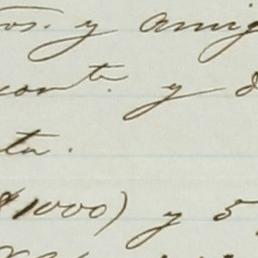 tos. y amig
cont. y d
ta.
$1000) y 5